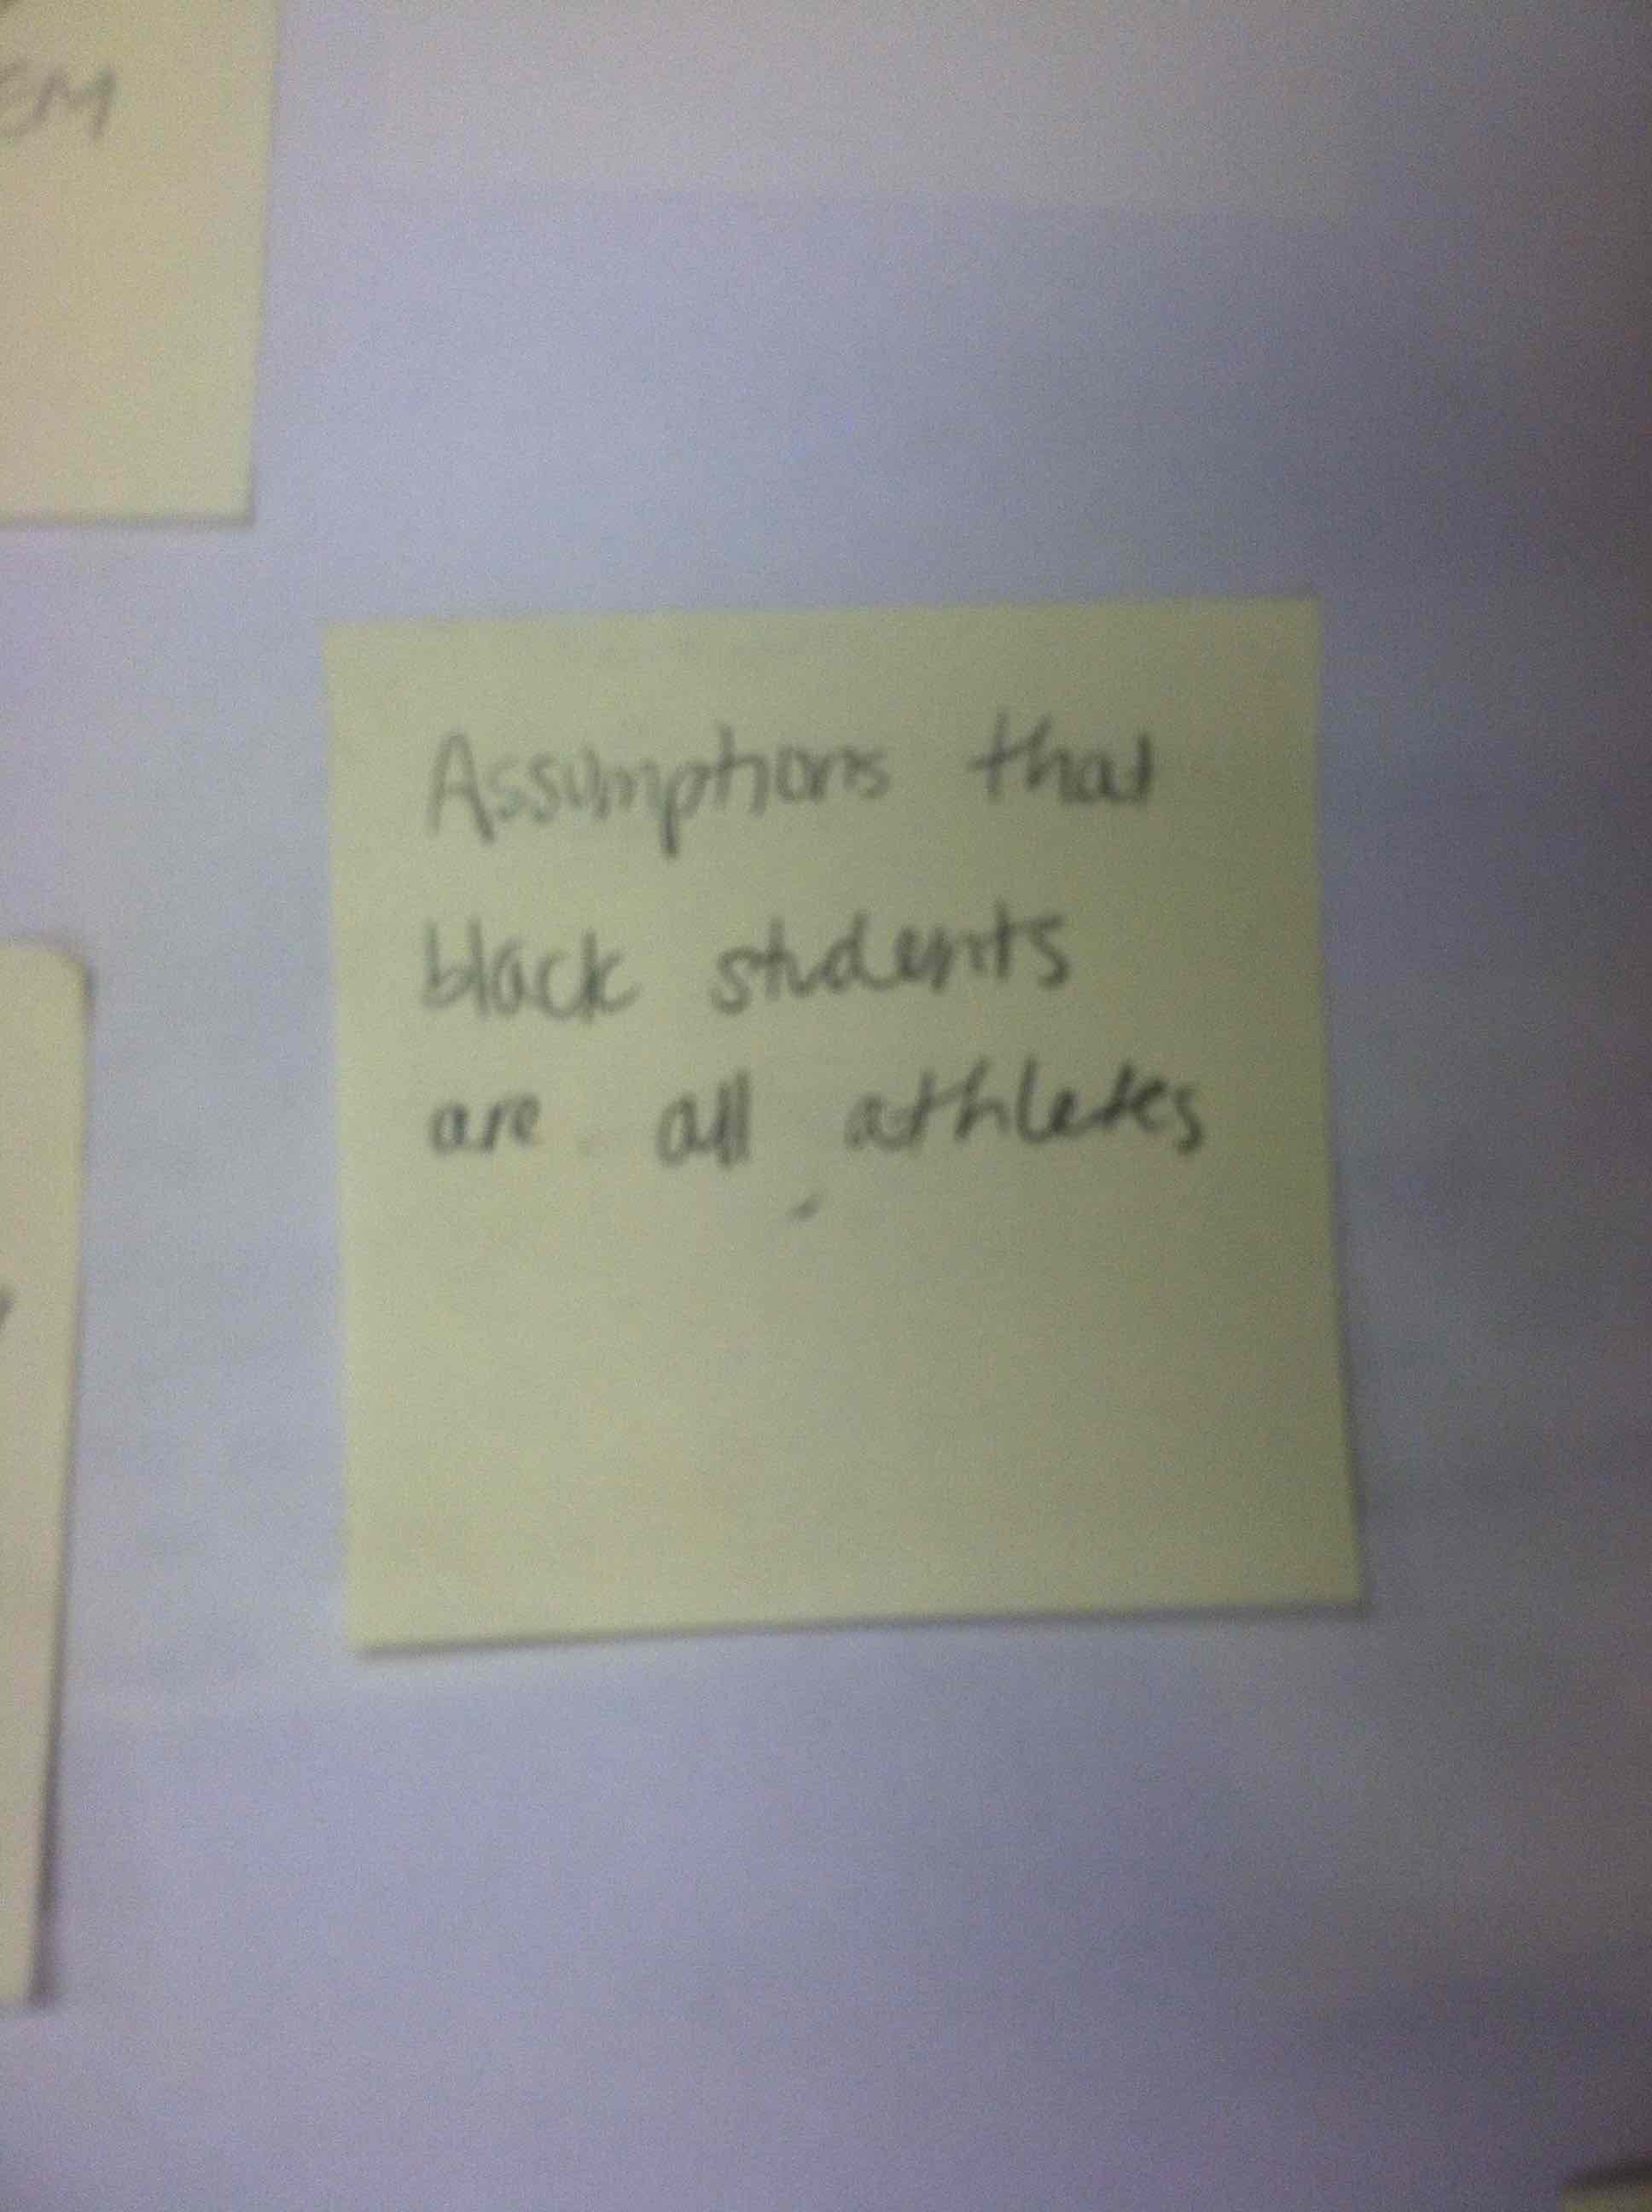 EM
Assumptions that
black students
are all athletes